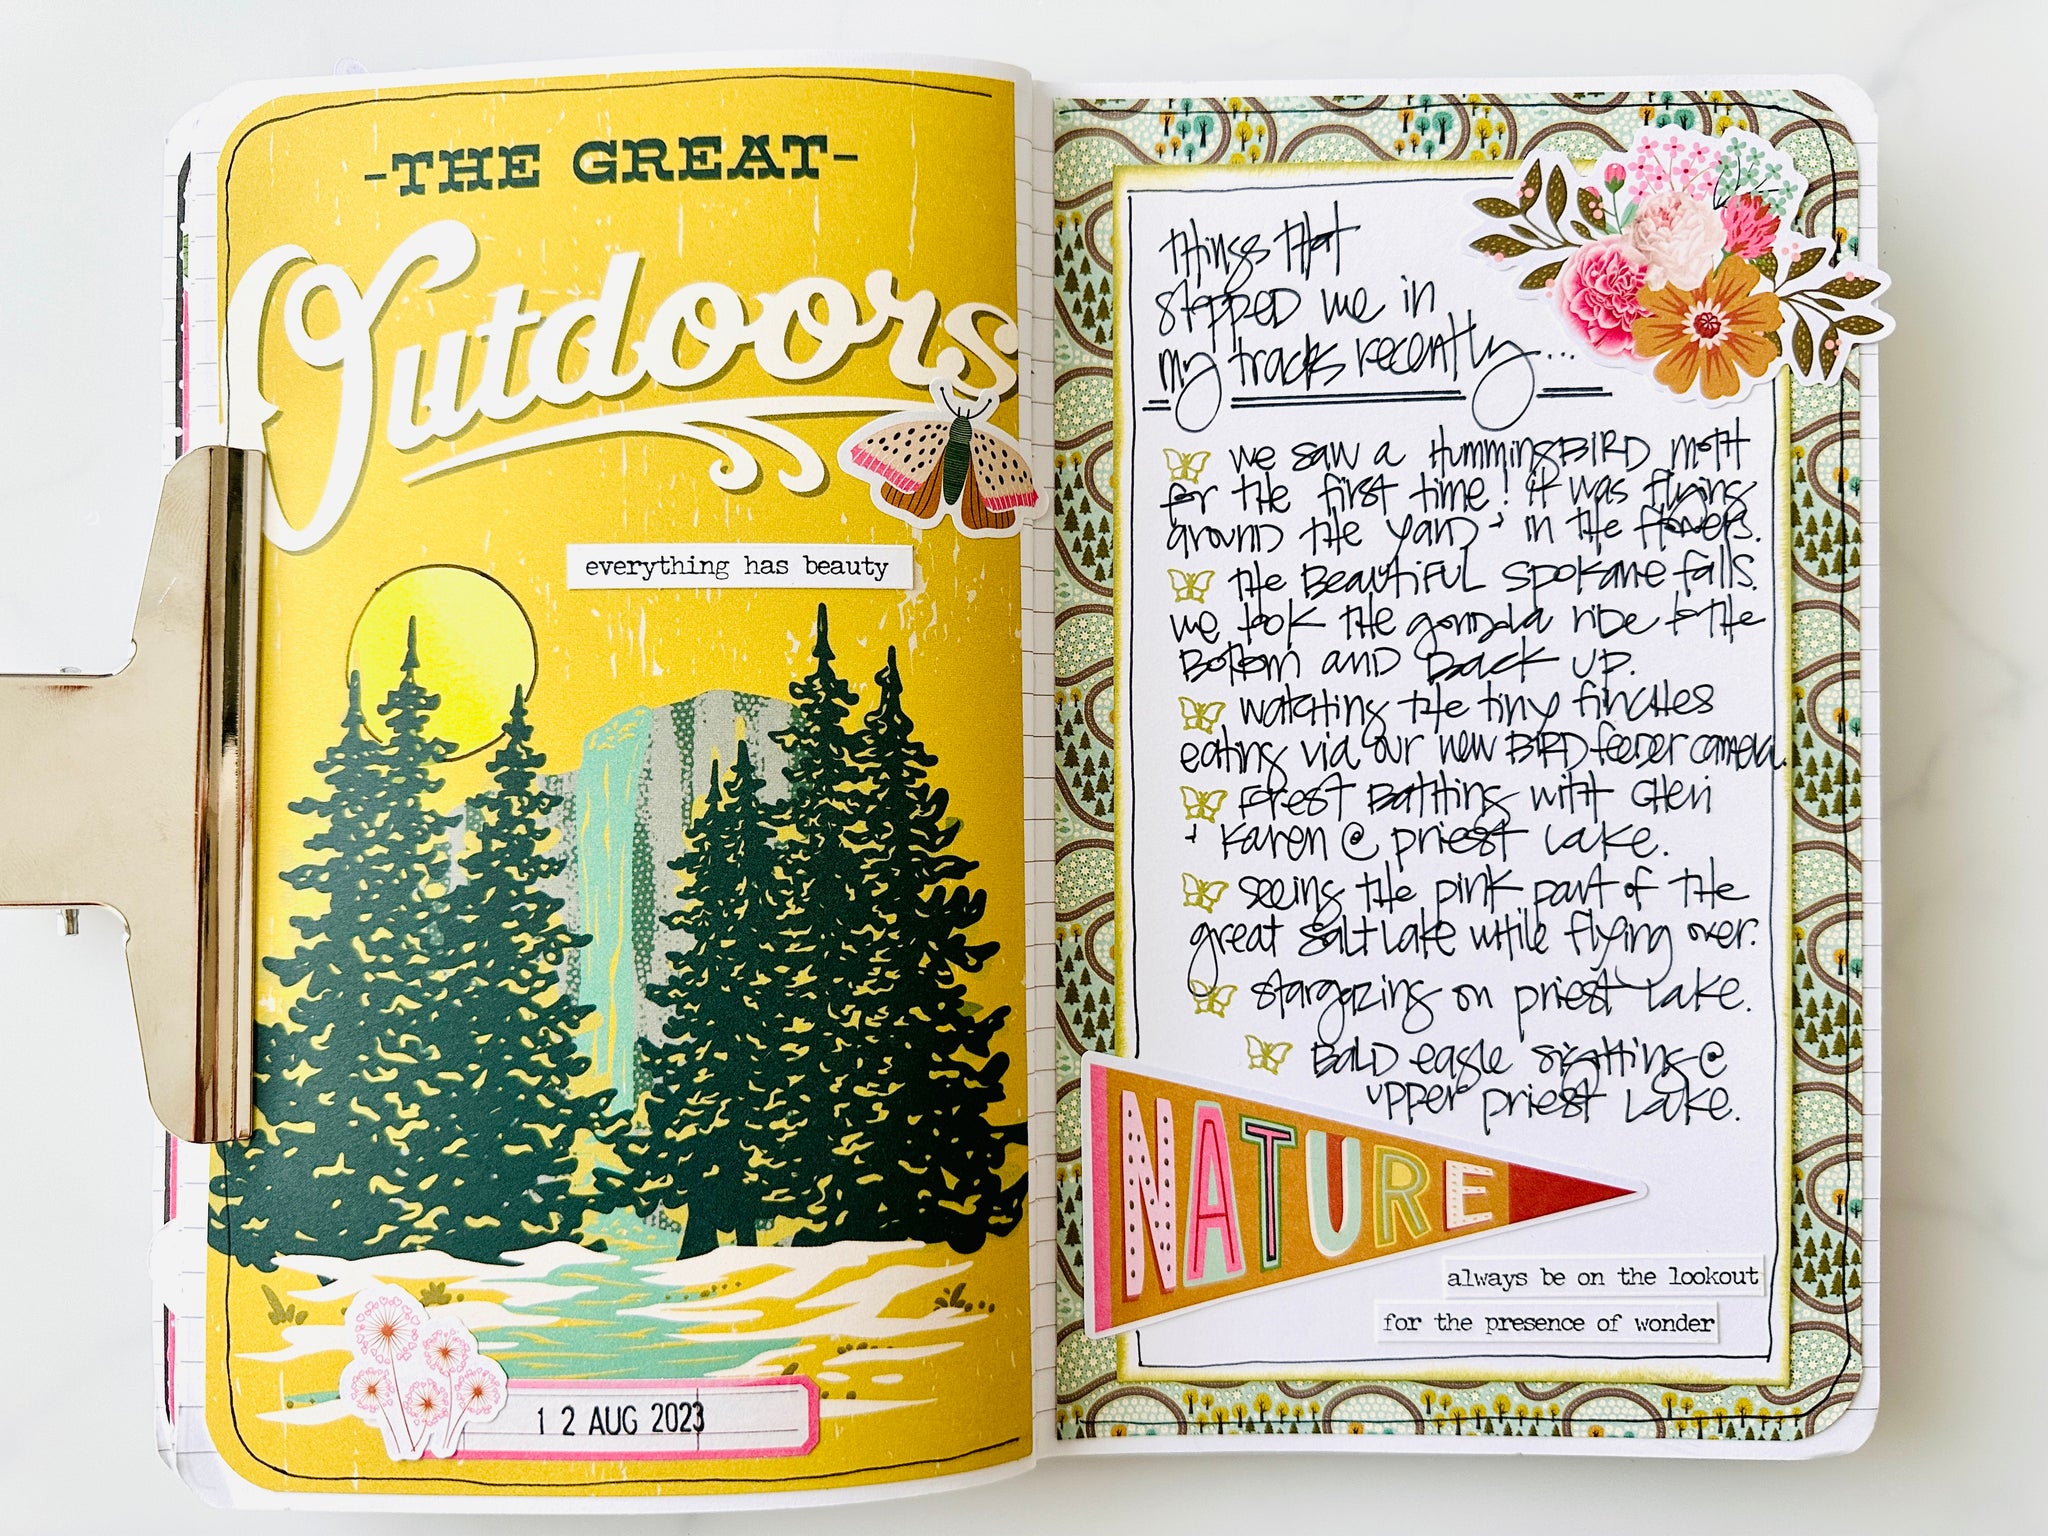 -THE GREAT-
Outdoors
everything has beauty
12 AUG 2023
things that
stopped me in
my tracks recently...
we saw a HummingBIRD moth
for the first time! it was flying
around the yard + in the flowers.
the Beautiful Spokane falls.
we took the gondola ride to the
Bottom and Back up.
watching the tiny finches
eating via our new BIRD feeder camera.
forest Bathing with Cheri
+ Karen @ priest Lake.
seeing the pink part of the
great salt Lake while flying over.
stargazing on priest Lake.
Bald eagle sighting @
upper priest Lake.
NATURE
always be on the lookout
for the presence of wonder